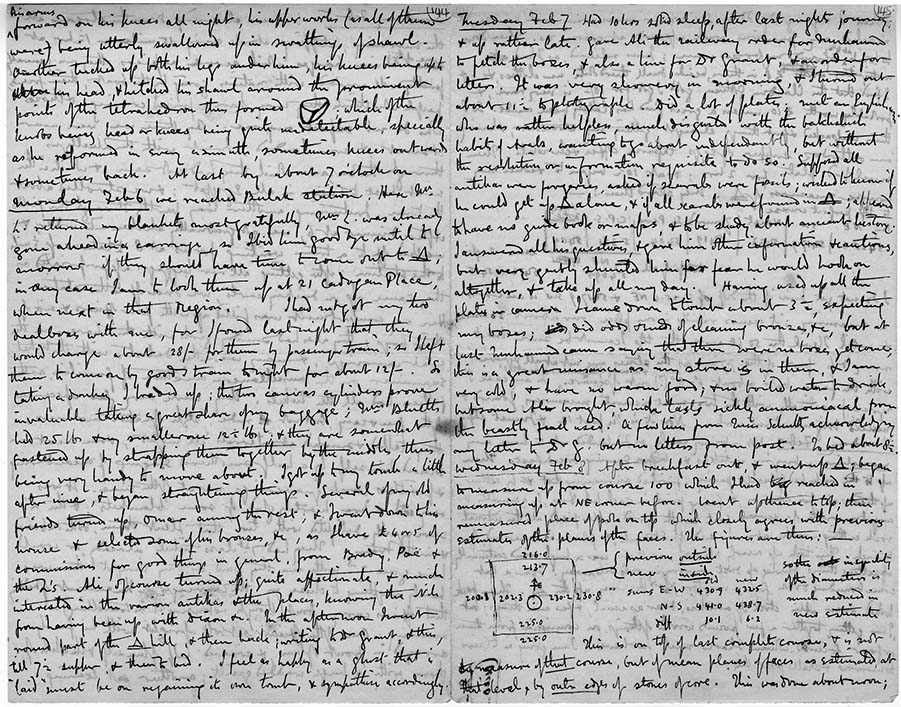 144
forward on his knees all night, his upper works (as all of them
were) being utterly swallowed up in swathing of shawl.
Another tucked up both his legs under him, his knees being up to
his head, & hitched his shawl around the prominent
points of the tetrahedron thus formed which of the
knobs being head or knees being quite undetectable, specially
as he reformed in every azimuth, sometimes knees outward
& sometimes back. At last by about 7 o'clock on
Monday Feb 6 we reached Bulak station. Here Mr
L. returned my blankets most gratefully, Mrs L. was already
going ahead in a carriage, so I bid him good bye until to
morrow if they should have time to come out to Δ;
in any case I am to look them up at 21 Cadogan Place,
when next in that Region. I had not got my two
deal boxes with me, for I found last night that they
would charge about 28/- for them by passenger train; so I left
them to come on by goods train tonight for about 12/-. So
taking a donkey I loaded up; the two canvas cylinders prove
invaluable taking a great share of my baggage; Mrs Bluett's
had 25 lbs & my smaller one 12½ lbs, & they are somewhat
fastened up by strapping them together by the middle, thus
being very handy to move about. I got up to my tomb a little
after nine, & began straightening things. Several of my old
friends turned up, Omar among the rest; & I went down to his
house & selected some of his bronzes, &c, as I have £4 or 5 of
commissions for good things in general, from Bredy, Poë &
the L's. Ali of course turned up, quite affectionate, & much
interested in the various antikas & the places, knowing the Nile
from having been up with Dixon &c. In the afternoon I went
round part of the Δ hill, & then back; writing to Dr Grant, & this,
till 7½ supper & then to bed. I feel as happy as a ghost that is
"laid" must be on regaining its own tomb, & sympathise accordingly.
145
Tuesday Feb 7 Had 10 hrs solid sleep, after last night journey,
& up rather late. Gave Ali the railway order for Muhammed
to fetch the boxes, & also a line for Dr Grant, & an order for
letters. It was very showery in morning, & I turned out
about 11½ to photograph. Did a lot of plates; met an English
who was rather helpless, much disgusted with the bakhshish
habits of Arabs, wanting to go about independently, but without
the resolution or information requisite to do so. Supposed all
antikas were forgeries, asked if scarabs were fossils; wished to know if
he could get up Δ alone, & if all scarabs were found in Δ; appeared
to have no guide book or maps, & to be shady about ancient history.
I answered all his questions, & gave him other information & cautions,
but very gently shunted him for fear he would hook on
altogether, & take up all my day. Having used up all the
plates in camera I came down to tomb about 3½, expecting
my boxes; did odds & ends of cleaning bronzes, &c, but at
last Muhammed came saying that there were no boxes yet come;
this is a great nuisance as my stove is in them, & I am
very cold, & have no warm food; & no boiled water to drink
but some Ali brought which tasts sickly ammoniacal from
the beastly fuel used. A few lines from Miss Schultz acknowledging
my letter to Dr G. but no letters from post. To bed about 8½
Wednesday Feb 8 After breakfast out, & went up Δ; began
to measure up from course 100 which I had reached in
measuring up at NE corner before. Went up thence to top, then
remeasured place of poles on top which closely agrees with previous
estimates of the planes of the faces. The figures are thus: —
216.0
213.7
203.8 202.3 230.2 230.8
225.0
225.0
previous outside
new inside
old new
Sums E-W 430.9 432.5
N-S 441.0 438.7
diff 10.1 6.2
so the inequality
of the diameters is
much reduced in
new estimate
This is on top of last complete course, & is not
by measure of that course, but of mean planes of faces as estimated at
that level, & by outer edges of stones of core. This was done about noon;